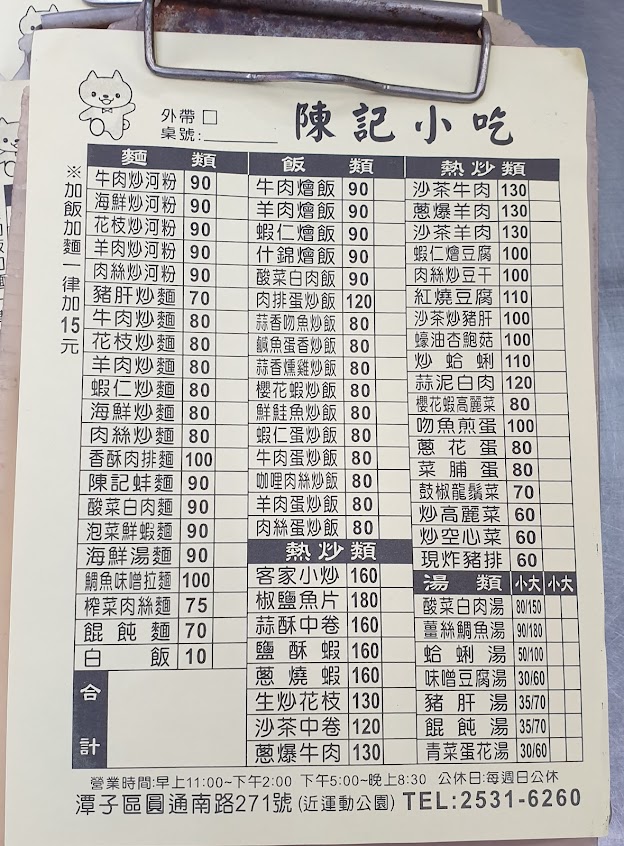 外帶□
桌號:
陳記小吃
※加飯加麵一律加15元
麵類
牛肉炒河粉 90
海鮮炒河粉 90
花枝炒河粉 90
羊肉炒河粉 90
肉絲炒河粉 90
豬肝炒麵 70
牛肉炒麵 80
花枝炒麵 80
羊肉炒麵 80
蝦仁炒麵 80
海鮮炒麵 80
肉絲炒麵 80
香酥肉排麵 100
陳記蚌麵 90
酸菜白肉麵 90
泡菜鮮蝦麵 90
海鮮湯麵 90
鯛魚味噌拉麵 100
榨菜肉絲麵 75
餛飩麵 70
白飯 10
合計
飯類
牛肉燴飯 90
羊肉燴飯 90
蝦仁燴飯 90
什錦燴飯 90
酸菜白肉飯 90
肉排蛋炒飯 120
蒜香吻魚炒飯 80
鹹魚蛋香炒飯 80
蒜香燻雞炒飯 80
櫻花蝦炒飯 80
鮮鮭魚炒飯 80
蝦仁蛋炒飯 80
牛肉蛋炒飯 80
咖哩肉絲炒飯 80
羊肉蛋炒飯 80
肉絲蛋炒飯 80
熱炒類
客家小炒 160
椒鹽魚片 180
蒜酥中卷 160
鹽酥蝦 160
蔥燒蝦 160
生炒花枝 130
沙茶中卷 120
蔥爆牛肉 130
熱炒類
沙茶牛肉 130
蔥爆羊肉 130
沙茶羊肉 130
蝦仁燴豆腐 100
肉絲炒豆干 100
紅燒豆腐 110
沙茶炒豬肝 100
蠔油杏鮑菇 100
炒蛤蜊 110
蒜泥白肉 120
櫻花蝦高麗菜 80
吻魚煎蛋 100
蔥花蛋 80
菜脯蛋 80
鼓椒龍鬚菜 70
炒高麗菜 60
炒空心菜 60
現炸豬排 60
湯類 小大 小大
酸菜白肉湯 80/150
薑絲鯛魚湯 90/180
蛤蜊湯 50/100
味噌豆腐湯 30/60
豬肝湯 35/70
餛飩湯 35/70
青菜蛋花湯 30/60
營業時間:早上11:00~下午2:00 下午5:00~晚上8:30 公休日:每週日公休
潭子區圓通南路271號(近運動公園) TEL:2531-6260